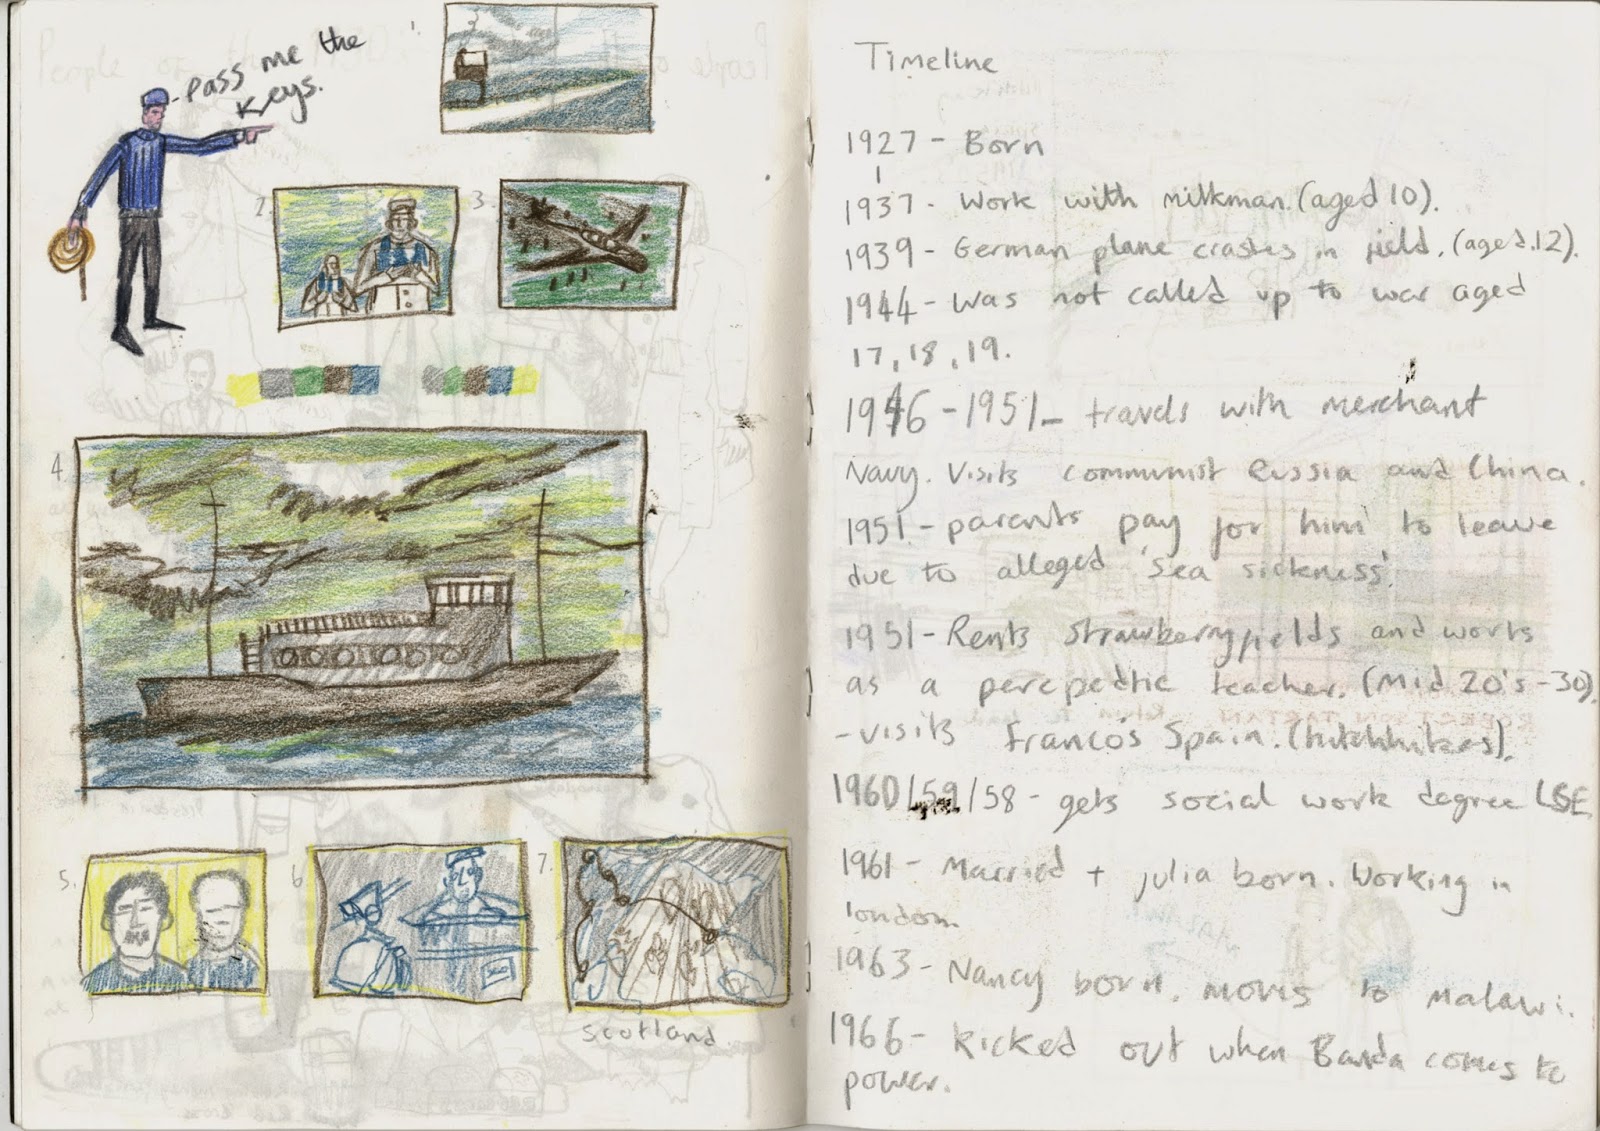 Pass me the
Keys.
2.
3.
4.
5.
6.
7.
Scotland.
Timeline
1927 - Born
1937 - Work with milkman. (aged 10).
1939 - German plane crashes in field. (aged 12).
1944 - Was not called up to war aged
17, 18, 19.
1946 - 1951 - travels with merchant
Navy. Visits communist Russia and China.
1951 - parents pay for him to leave
due to alleged 'sea sickness'.
1951 - Rents strawberryfields and works
as a perepedtic teacher. (Mid 20's - 30).
- visits Franco's Spain. (hitchhikes).
1960/59/58 - gets social work degree LSE
1961 - Married + julia born. Working in
london.
1963 - Nancy born. moves to malawi.
1966 - kicked out when Banda comes to
power.